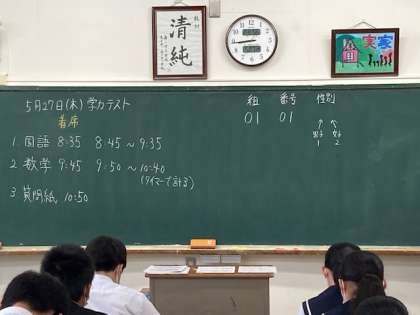 清純
実家
5月27日(木) 学力テスト
着席
1. 国語 8:35 8:45 ~ 9:35
2 数学 9:45 9:50 ~ 10:40
(タイマーで計る)
3 質問紙 10:50
組 番号 性別
01 01
男子 女子
1 2